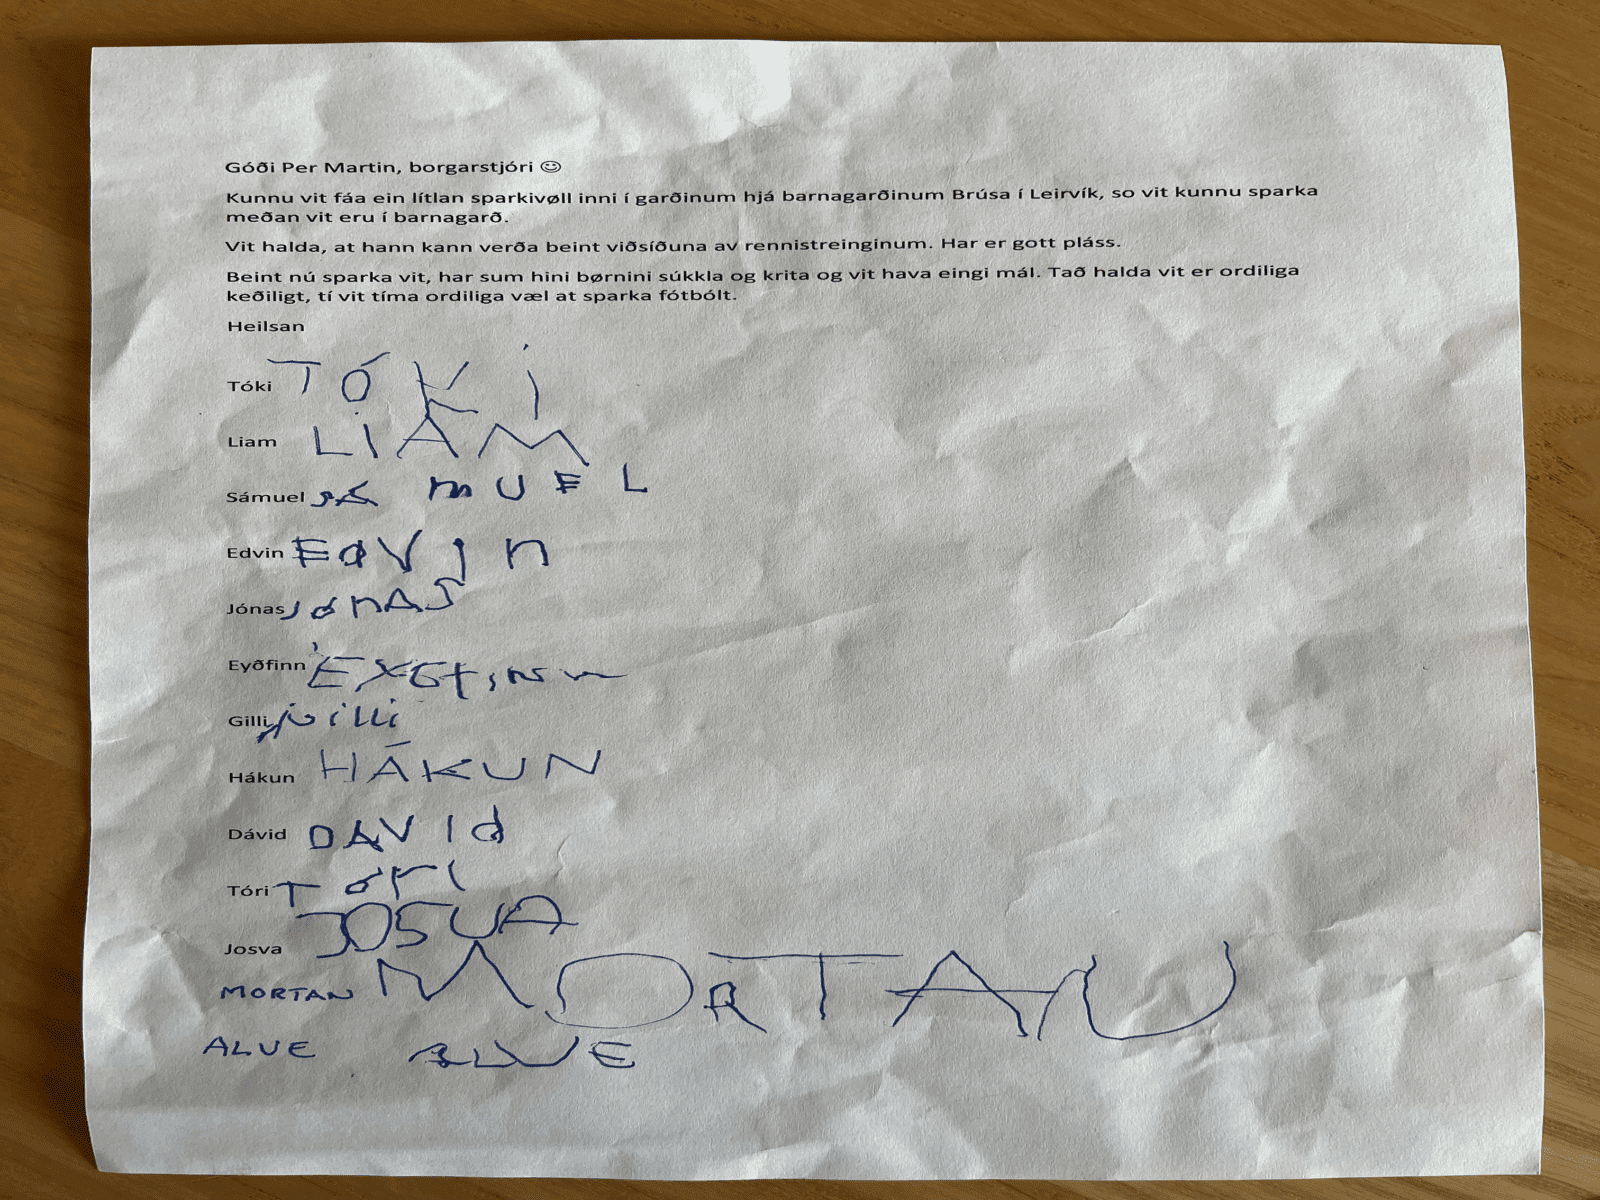 Góði Per Martin, borgarstjóri ☺
Kunnu vit fáa ein lítlan sparkivøll inni í garðinum hjá barnagarðinum Brúsa í Leirvík, so vit kunnu sparka
meðan vit eru í barnagarð.
Vit halda, at hann kann verða beint viðsíðuna av rennistreinginum. Har er gott pláss.
Beint nú sparka vit, har sum hini børnini súkkla og krita og vit hava eingi mál. Tað halda vit er ordiliga
keðiligt, tí vit tíma ordiliga væl at sparka fótbólt.
Heilsan
Tóki TÓKi
Liam LiAM
Sámuel SÁ MUEL
Edvin EdVIn
Jónas JÓNAS
Eyðfinn
Gilli gilli
Hákun HÁKUN
Dávid DAVId
Tóri TÓri
Josva JOSUA
MORTAN MORTAN
ALVE ALVE